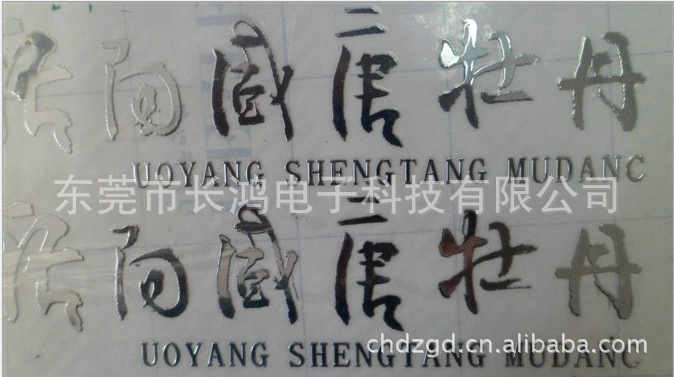 洛阳盛唐牡丹
UOYANG SHENGTANG MUDANC
东莞市长鸿电子科技有限公司
洛阳盛唐牡丹
chdzgd.cn.alibaba.com
UOYANG SHENGTANG MUDANC